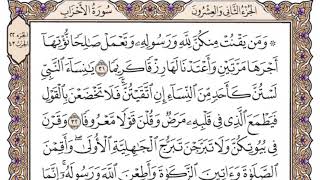 الجزء الثاني والعشرون سورة الأحزاب
وَمَن يَقْنُتْ مِنكُنَّ لِلَّهِ وَرَسُولِهِ وَتَعْمَلْ صَالِحًا نُّؤْتِهَا
أَجْرَهَا مَرَّتَيْنِ وَأَعْتَدْنَا لَهَا رِزْقًا كَرِيمًا ٣١ يَٰنِسَآءَ ٱلنَّبِيِّ
لَسْتُنَّ كَأَحَدٍ مِّنَ ٱلنِّسَآءِ إِنِ ٱتَّقَيْتُنَّ فَلَا تَخْضَعْنَ بِٱلْقَوْلِ
فَيَطْمَعَ ٱلَّذِي فِي قَلْبِهِۦ مَرَضٌ وَقُلْنَ قَوْلًا مَّعْرُوفًا ٣٢ وَقَرْنَ
فِي بُيُوتِكُنَّ وَلَا تَبَرَّجْنَ تَبَرُّجَ ٱلْجَٰهِلِيَّةِ ٱلْأُولَىٰ وَأَقِمْنَ
ٱلصَّلَوٰةَ وَءَاتِينَ ٱلزَّكَوٰةَ وَأَطِعْنَ ٱللَّهَ وَرَسُولَهُۥٓ إِنَّمَا